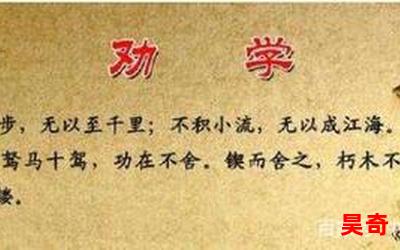 劝学
步，无以至千里；不积小流，无以成江海。
驽马十驾，功在不舍。锲而舍之，朽木不
镂。
昊奇